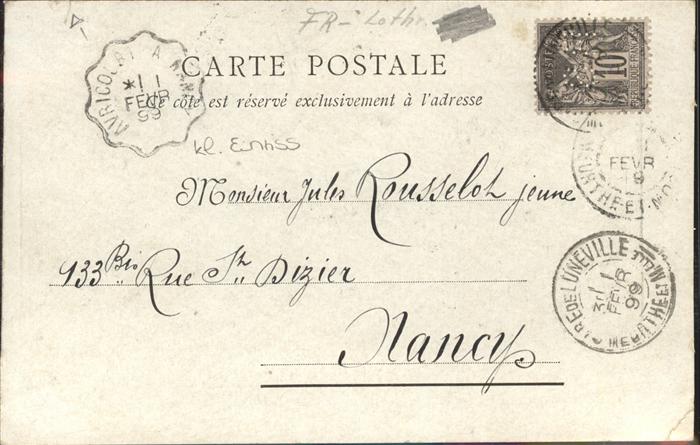 FR - Lothr.
CARTE POSTALE
Ce côté est réservé exclusivement à l'adresse
AVRICOURT A NANCY
1
FEVR
99
kl. Einriss
10
REPUBLIQUE FRANÇAISE
FEVR
MEURTHE-ET-MOS
Monsieur Jules Rousselot jeune
133 Bis Rue St. Dizier
Nancy
GARE DE LUNEVILLE
1
FEVR
99
MEURTHE ET MLLE